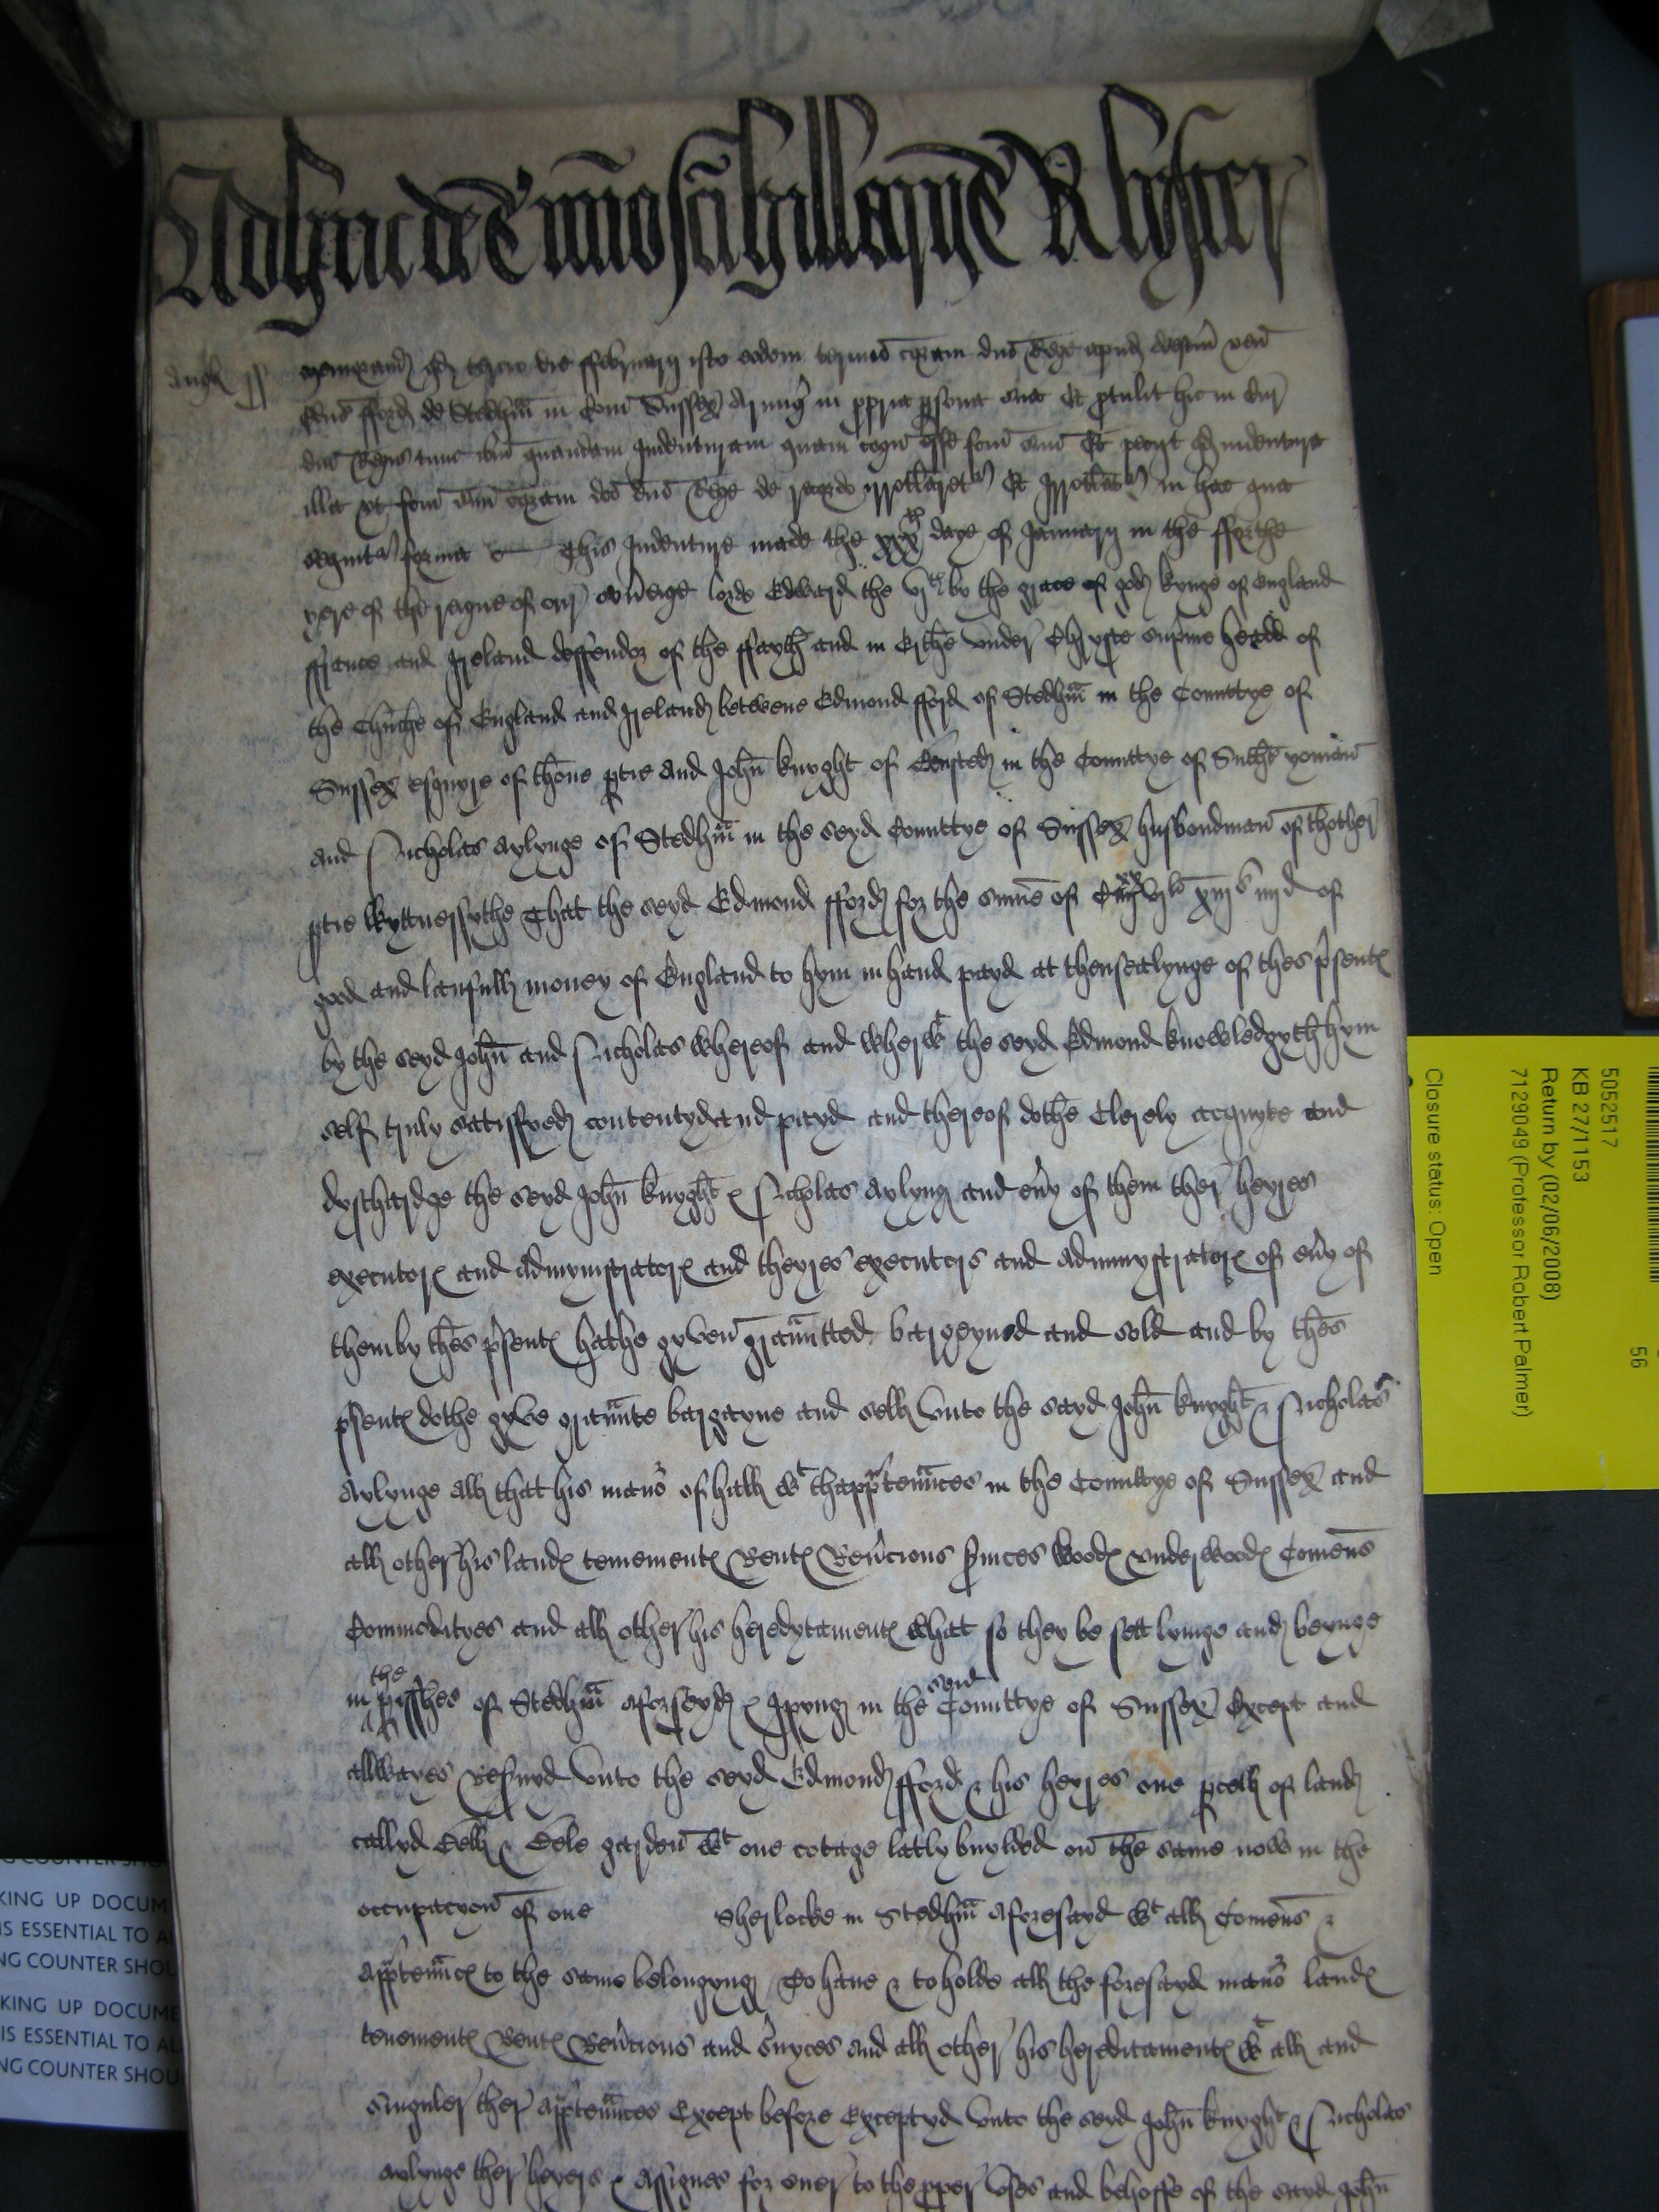 Adhuc de Termino sci Hillarij R Lyster
Angl ss Memorand qd tercio die ffebruarij isto eodem termino coram dno Rege apud Westm ven
Edus fford de Stedhm in Com Sussex Armig in ppria psona sua Et ptulit hic in Cur
dni Regis tunc ibm quandam Indenturam quam cogn esse fcm suu Et petijt qd indentura
illa vt fcm suu coram dco dno Rege de recordo irrotlaret Et Irrotlat in hac que
sequit forma This Indenture made the xxx daye of January in the fforthe
yere of the reigne of our sovaige lorde Edward the vjth by the grace of god kynge of England
ffrance and Ireland deffendor of the ffayth and in Erthe under Chryste supme hedd of
the Churche of England and Ireland betwene Edmond fford of Stedhm in the Counttye of
Sussex esquyre of thone ptie and John knyght of in the Counttye of Suthe yoman
and Nicholas aylynge of Stedhm in the seyd Counttye of Sussex husbondman of thother
ptie Wyttnessythe That the seyd Edmond fford for the sume of xiijs iiijd of
good and laufull money of England to hym in hand payd at thensealynge of thes psent
by the seyd John and Nicholas Whereof and wherwt the seyd Edmond knowledgyth hym
self truly satisfyed contentyd and payd and thereof dothe Clerely acquyte and
dyschardge the seyd John knyght & Nicholas aylyng and evy of them ther heyres
executors and admynystrators and theyres executors and admynystrators of evy of
them by thes psent hathe gyven graunted bargeyned and sold and by thes
psent dothe gyve graunte bargayne and sell unto the sayd John knyght & Nicholas
aylynge all that his mano of hull wt thapptennces in the Counttye of Sussex and
all other his lands tenements Rents Revcions svices woods underwoods Comens
Commodityes and all other his heredytaments what so they be sett lyinge and beynge
in the pisshes of Stedhm aforseyd & Ipyng in the seyd Counttye of Sussex Except and
allwayes Resvyd unto the seyd Edmond fford & his heyres one pcell of land
callyd & garden wt one cotage latly buylded on the same now in the
occupacyon of one Sherlocke in Stedhm aforesayd wt all Comens &
apptennces to the same belongyng To have & to holde all the foresayd mano lands
tenements Rents Revcions and svyces and all other his hereditaments wt all and
singuler ther apptennces Except before Exceptyd unto the seyd John knyght & Nicholas
aylynge ther heyers & Assignes for ever to the pper Uses and behoffe of the sayd John
5052517
KB 27/1153
Return by (02/06/2008)
7129049 (Professor Robert Palmer)
Closure status: Open
56
G COUNTER SHO
KING UP DOCUM
IS ESSENTIAL TO A
NG COUNTER SHOU
KING UP DOCUME
IS ESSENTIAL TO AL
NG COUNTER SHOU